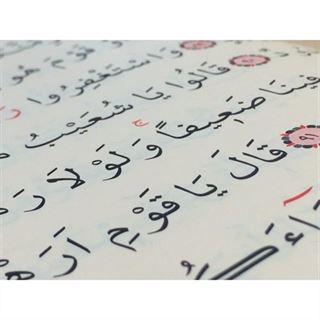 قَوْمَ هُو
وَاسْتَغْفِرُوا
قَالُوا يَا شُعَيْبُ
فِينَا ضَعِيفًا وَلَوْلَا رَ
٩١ قَالَ يَا قَوْمِ أَرَهْ